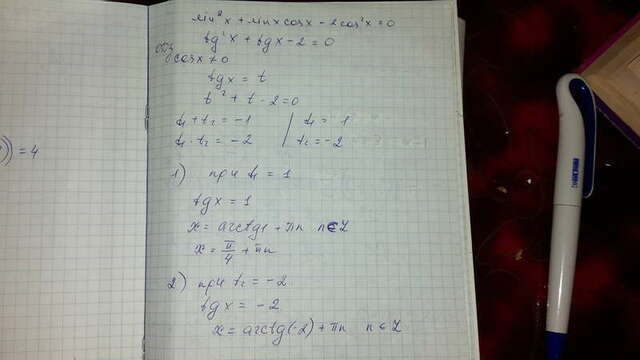 ) = 4
sin²x + sinx cosx - 2cos²x = 0
tg²x + tgx - 2 = 0
ОДЗ
cosx ≠ 0
tgx = t
t² + t - 2 = 0
t₁ + t₂ = -1 | t₁ = 1
t₁ · t₂ = -2 | t₂ = -2
1) при t₁ = 1
tgx = 1
x = arctg1 + πn n∈Z
x = π/4 + πn
2) при t₂ = -2
tgx = -2
x = arctg(-2) + πn n∈Z